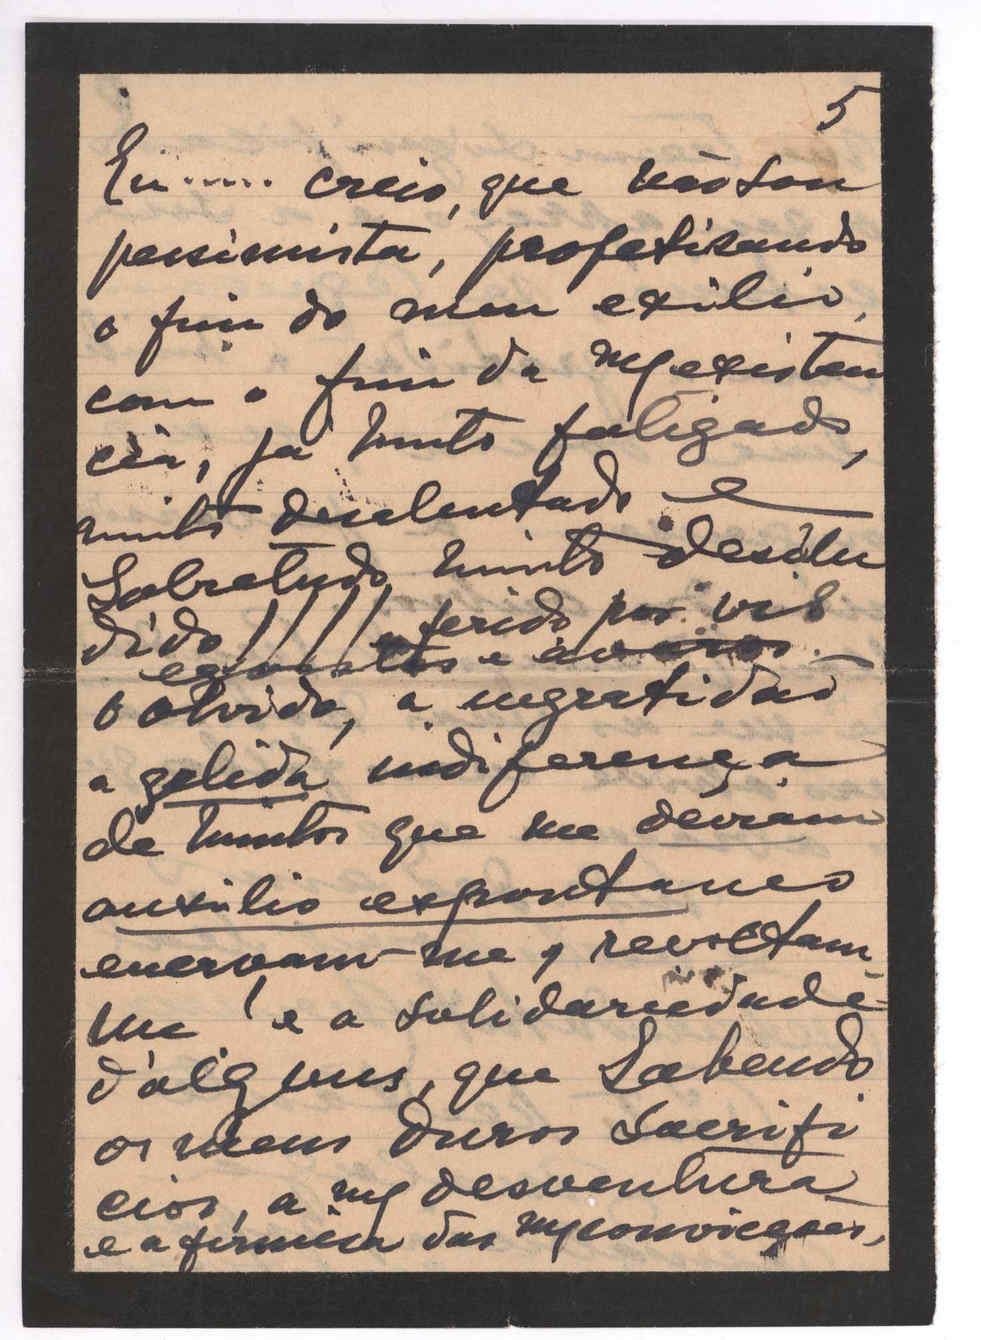 5
Eu ..... creio, que não sou
pessimista, profetisando
o fim do meu exilio,
com o fim da mª existen
cia, já muito fatigado,
muito desalentado e
sobretudo muito desilu
dido !!!! e ferido por vis
egoistas e avaros.
o olvido, a ingratidão
a gelida indiferença
de muitos que me deviam
auxilio expontaneo
enervam-me, revoltam-
me! e a solidariedade
d'alguns, que sabendo
os meus duros sacrifi
cios, a mª desventura
e a firmesa das mªs convicções,